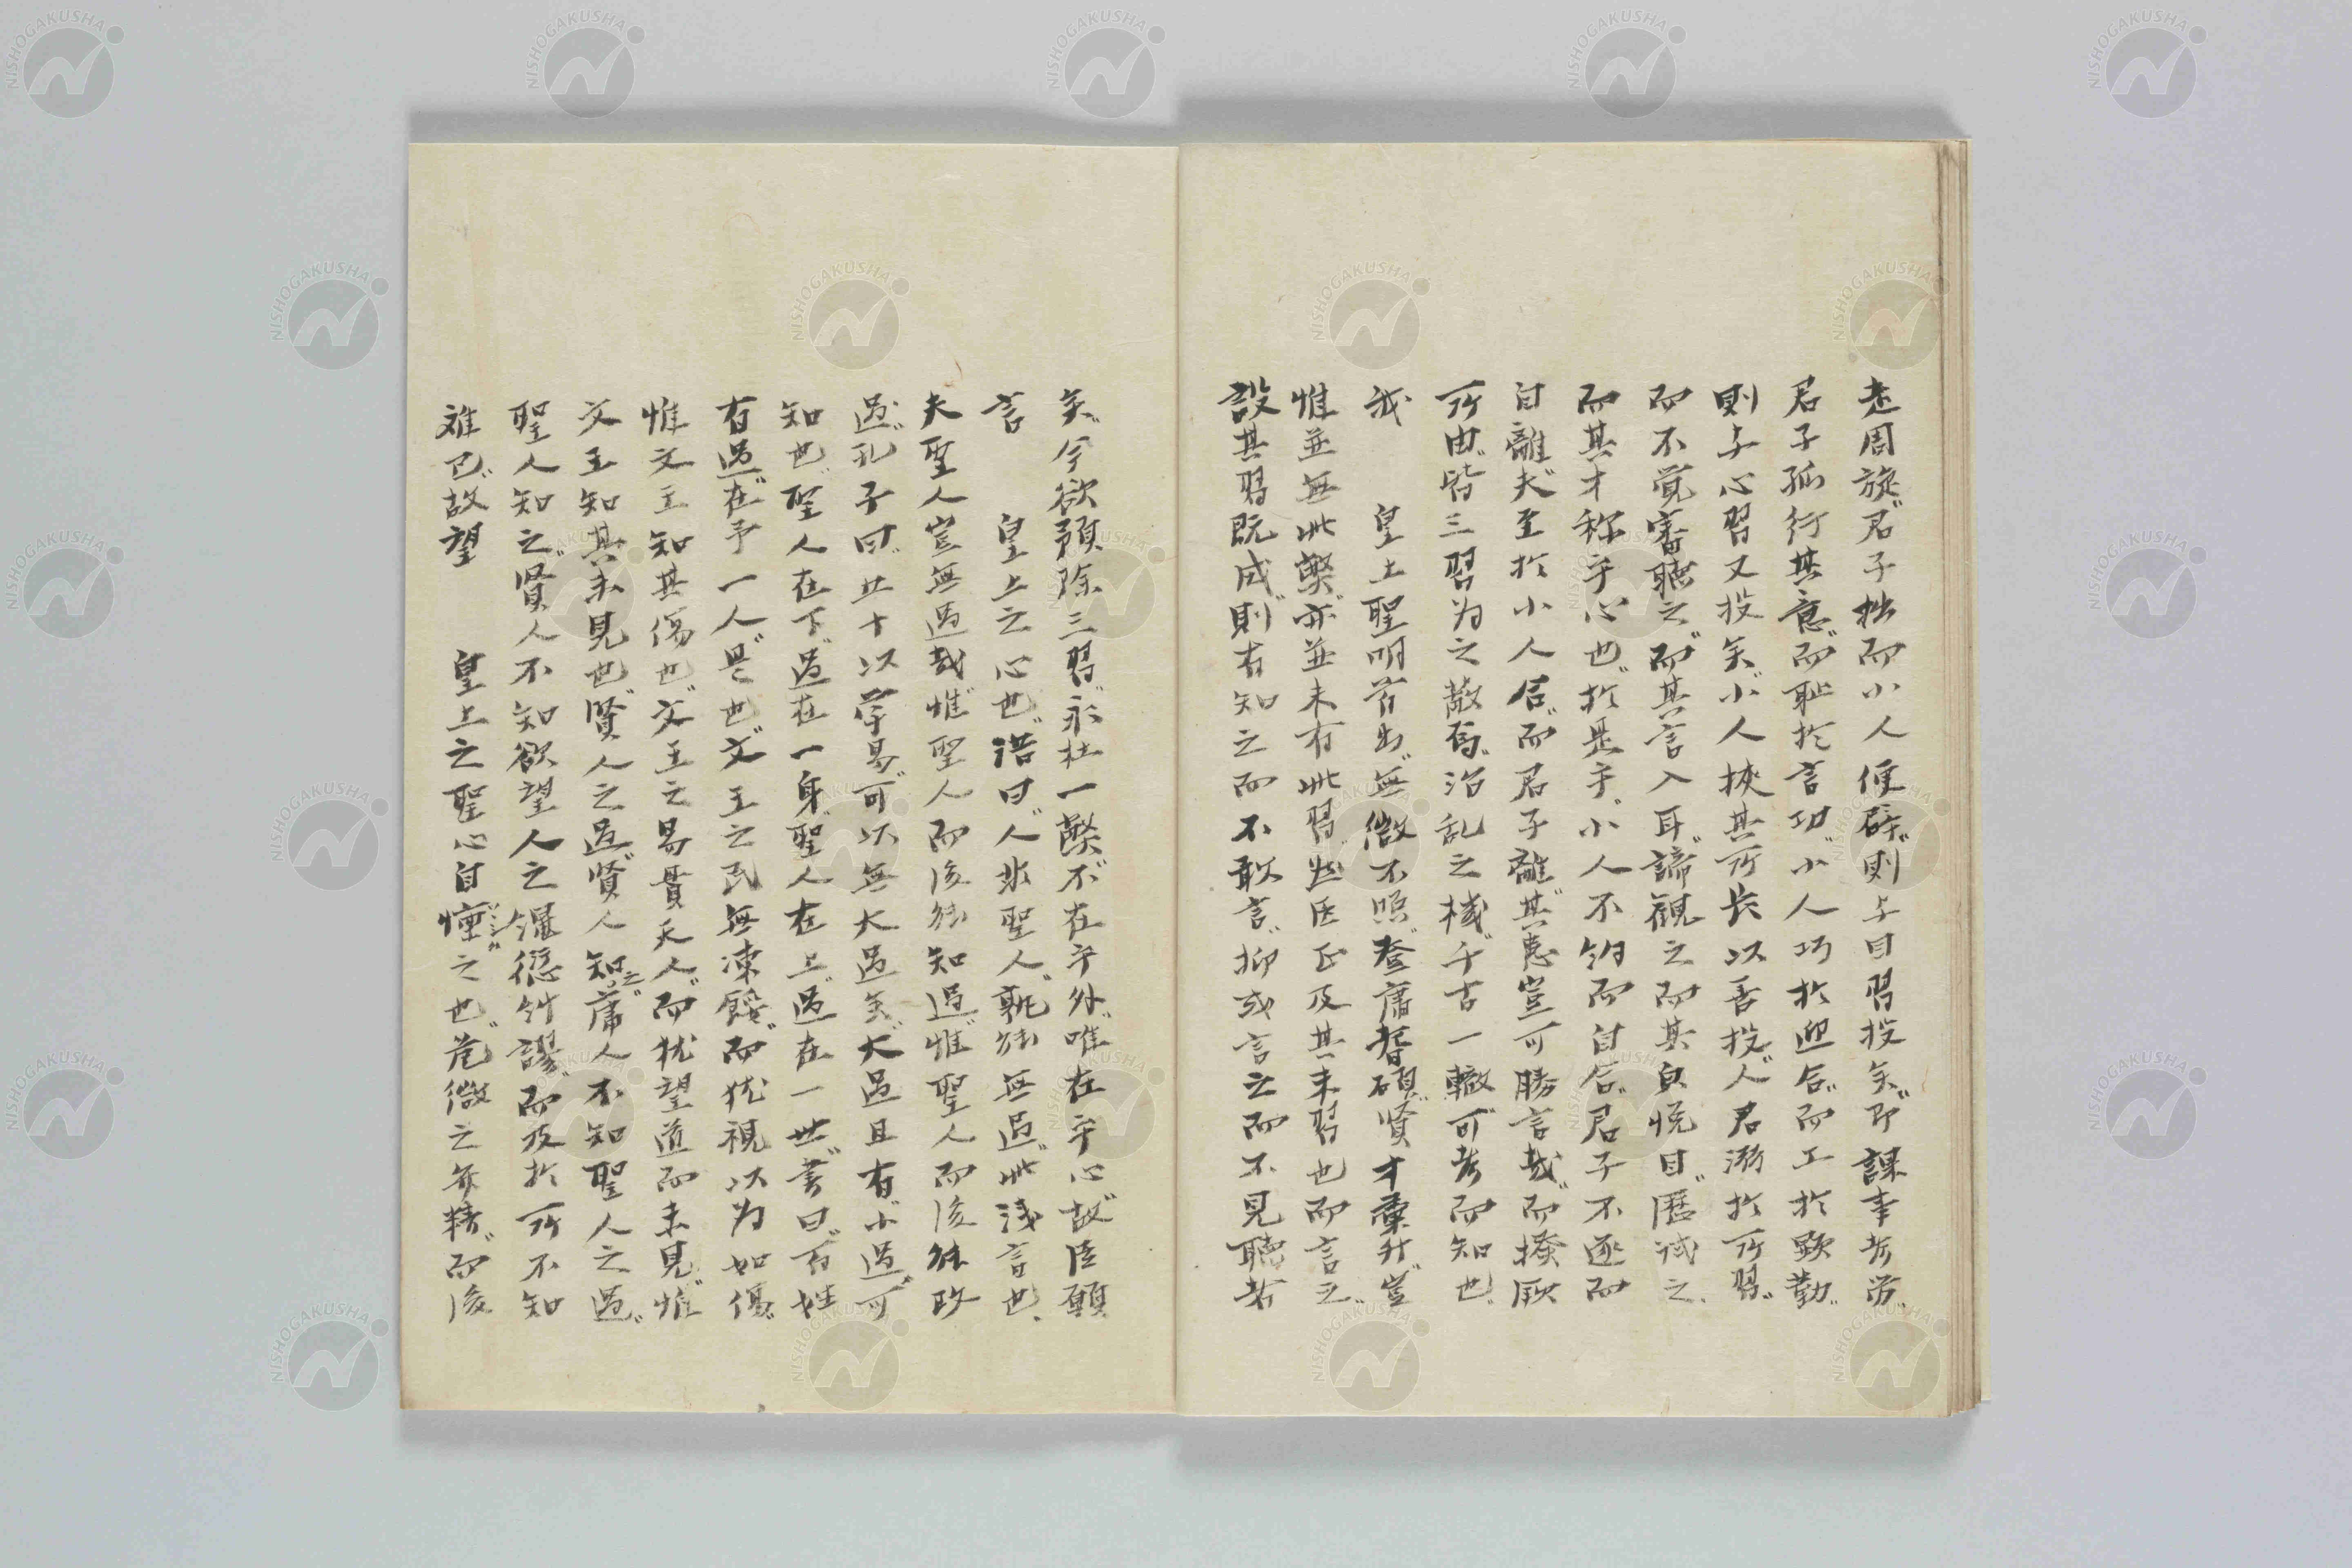 走周旋君子拙而小人便辟則与目習投矣即課事考労
君子孤行其意而恥於言功小人巧於迎合而工於顕勤
則与心習又投矣小人挟其所長以善投人君溺於所習
而不覚審聴之而其言入耳諦観之而其皃悦目歴試之
而其才称乎心也於是乎小人不約而自合君子不逐而
自離夫至於小人合而君子離其患豈可勝言哉而揆厥
所由皆三習为之蔽焉治乱之機千古一轍可考而知也
我 皇上聖明首出無微不照登庸耆碩賢才彙升豈
惟並無此弊亦並未有此習然臣正及其未習也而言之
設其習既成則有知之而不敢言抑或言之而不見聴者
矣今欲預除三習永杜一弊不在乎外唯在乎心故臣願
言 皇上之心也語曰人非聖人孰能無過此浅言也
夫聖人豈無過哉惟聖人而後能知過惟聖人而後能改
過孔子曰五十以学易可以無大過矣大過且有小過可
知也聖人在下過在一身聖人在上過在一世書曰百姓
有過在予一人是也文王之民無凍餒而犹視以为如傷
惟文王知其傷也文王之易貫天人而犹望道而未見惟
文王知其未見也賢人之過賢人知之庸人不知聖人之過
聖人知之賢人不知欲望人之繩愆糾謬而及於所不知
难已故望 皇上之聖心自懍之也危微之弁精而後